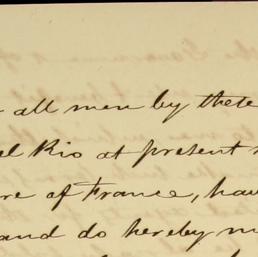 all men by these
el Rio at present
re of France, hav
and do hereby m